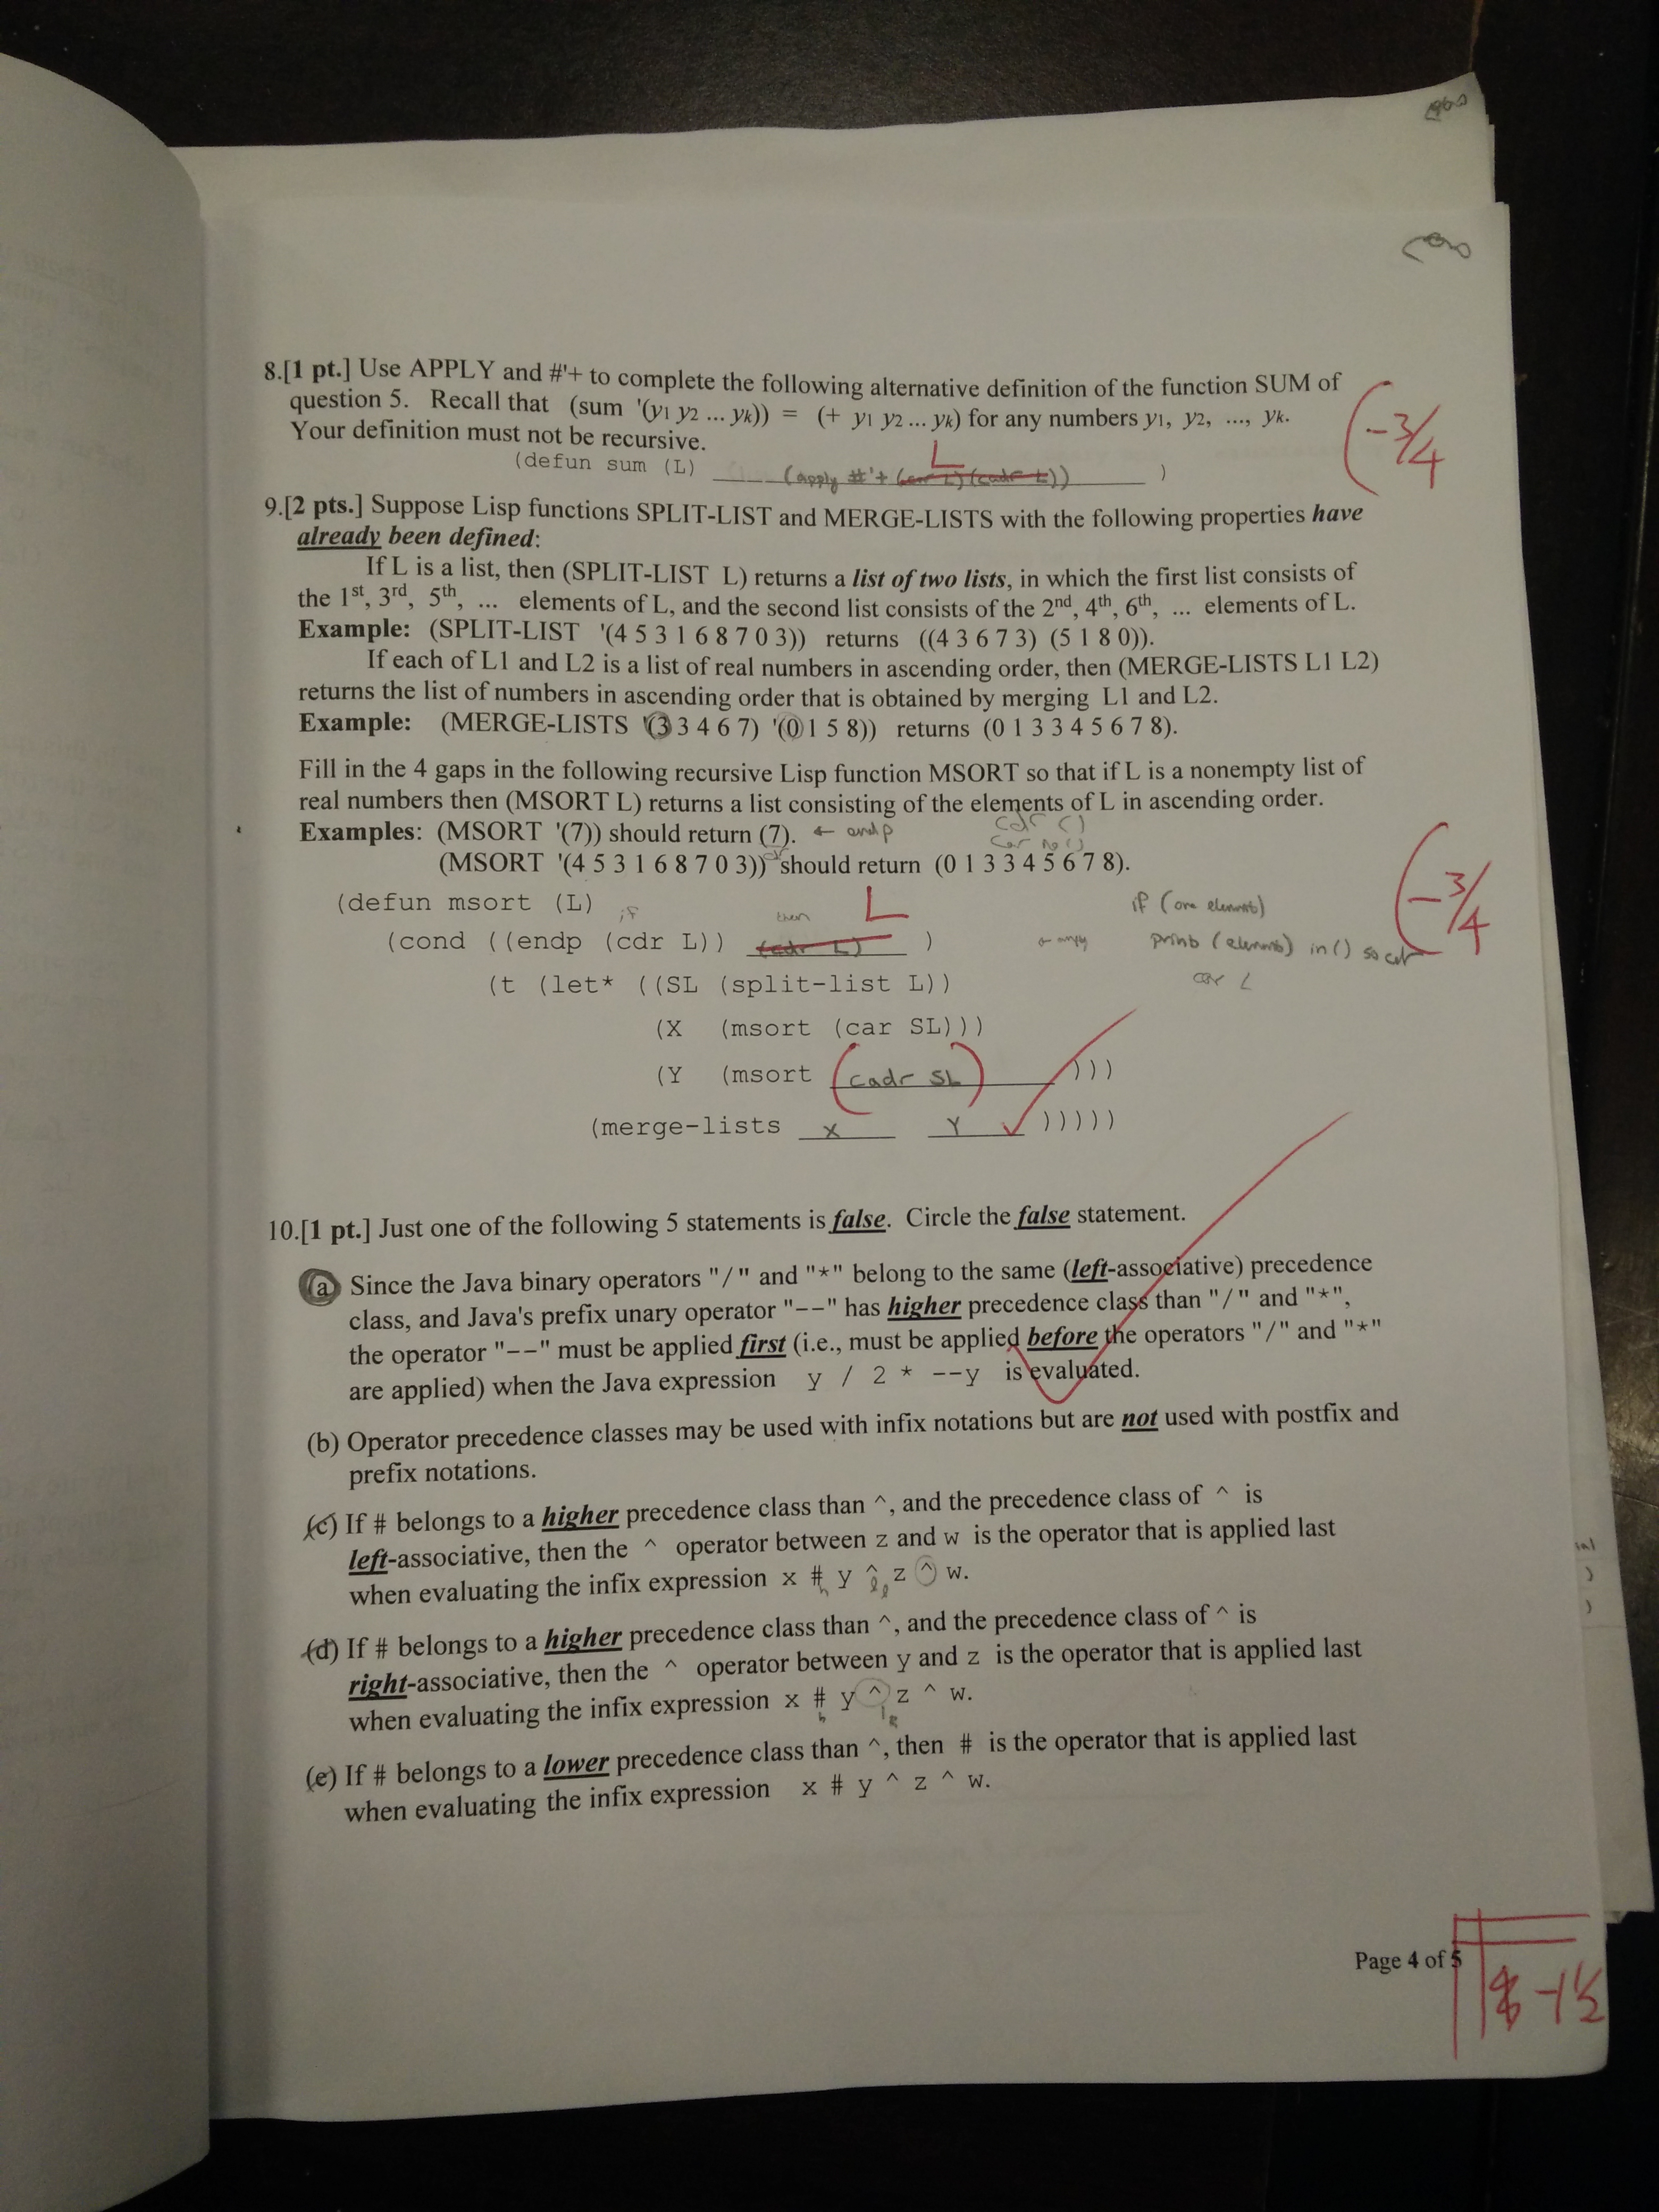 8.[1 pt.] Use APPLY and #'+ to complete the following alternative definition of the function SUM of
question 5. Recall that (sum '(y1 y2 ... yk)) = (+ y1 y2 ... yk) for any numbers y1, y2, ..., yk.
-3/4
Your definition must not be recursive.
L
(defun sum (L) (apply #'+ (car L) (cadr L)) )
9.[2 pts.] Suppose Lisp functions SPLIT-LIST and MERGE-LISTS with the following properties have
already been defined:
If L is a list, then (SPLIT-LIST L) returns a list of two lists, in which the first list consists of
the 1st, 3rd, 5th, ... elements of L, and the second list consists of the 2nd, 4th, 6th, ... elements of L.
Example: (SPLIT-LIST '(4 5 3 1 6 8 7 0 3)) returns ((4 3 6 7 3) (5 1 8 0)).
If each of L1 and L2 is a list of real numbers in ascending order, then (MERGE-LISTS L1 L2)
returns the list of numbers in ascending order that is obtained by merging L1 and L2.
Example: (MERGE-LISTS '(3 3 4 6 7) '(0 1 5 8)) returns (0 1 3 3 4 5 6 7 8).
Fill in the 4 gaps in the following recursive Lisp function MSORT so that if L is a nonempty list of
real numbers then (MSORT L) returns a list consisting of the elements of L in ascending order.
Examples: (MSORT '(7)) should return (7). ← endp cdr ()
car no ()
(MSORT '(4 5 3 1 6 8 7 0 3)) should return (0 1 3 3 4 5 6 7 8).
-3/4
(defun msort (L) if then L if (one element)
(cond ((endp (cdr L)) (cdr L) ) print (element) in () so
car L
(t (let* ((SL (split-list L))
(X (msort (car SL)))
(Y (msort (cadr SL) )))
(merge-lists X Y )))))
10.[1 pt.] Just one of the following 5 statements is false. Circle the false statement.
(a) Since the Java binary operators "/" and "*" belong to the same (left-associative) precedence
class, and Java's prefix unary operator "--" has higher precedence class than "/" and "*",
the operator "--" must be applied first (i.e., must be applied before the operators "/" and "*"
are applied) when the Java expression y / 2 * --y is evaluated.
(b) Operator precedence classes may be used with infix notations but are not used with postfix and
prefix notations.
(c) If # belongs to a higher precedence class than ^, and the precedence class of ^ is
left-associative, then the ^ operator between z and w is the operator that is applied last
when evaluating the infix expression x # y ^ z ^ w.
(d) If # belongs to a higher precedence class than ^, and the precedence class of ^ is
right-associative, then the ^ operator between y and z is the operator that is applied last
when evaluating the infix expression x # y ^ z ^ w.
(e) If # belongs to a lower precedence class than ^, then # is the operator that is applied last
when evaluating the infix expression x # y ^ z ^ w.
Page 4 of 5
-1½